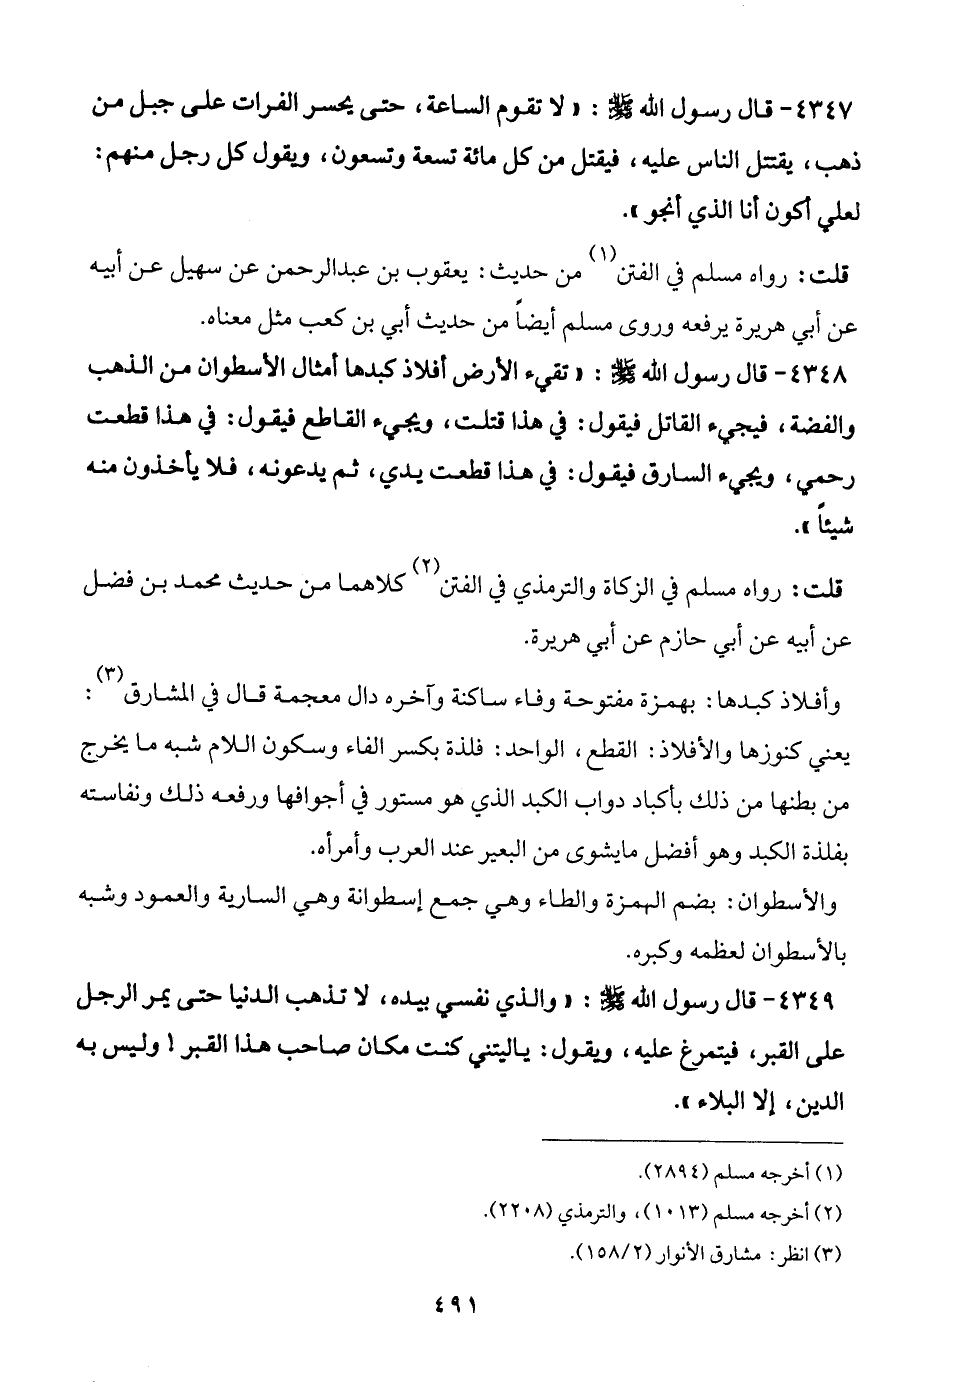 ٤٣٤٧- قال رسول الله ﷺ : « لا تقوم الساعة، حتى يحسر الفرات على جبل من
ذهب، يقتتل الناس عليه، فيقتل من كل مائة تسعة وتسعون، ويقول كل رجل منهم:
لعلي أكون أنا الذي أنجو».
قلت: رواه مسلم في الفتن(١) من حديث: يعقوب بن عبدالرحمن عن سهيل عن أبيه
عن أبي هريرة يرفعه وروى مسلم أيضاً من حديث أبي بن كعب مثل معناه.
٤٣٤٨- قال رسول الله ﷺ : « تقيء الأرض أفلاذ كبدها أمثال الأسطوان من الذهب
والفضة، فيجيء القاتل فيقول: في هذا قتلت، ويجيء القاطع فيقول: في هذا قطعت
رحمي، ويجيء السارق فيقول: في هذا قطعت يدي، ثم يدعونه، فلا يأخذون منه
شيئاً».
قلت: رواه مسلم في الزكاة والترمذي في الفتن(٢) كلاهما من حديث محمد بن فضل
عن أبيه عن أبي حازم عن أبي هريرة.
وأفلاذ كبدها: بهمزة مفتوحة وفاء ساكنة وآخره دال معجمة قال في المشارق(٣):
يعني كنوزها والأفلاذ: القطع، الواحد: فلذة بكسر الفاء وسكون اللام شبه ما يخرج
من بطنها من ذلك بأكباد دواب الكبد الذي هو مستور في أجوافها ورفعه ذلك ونفاسته
بفلذة الكبد وهو أفضل مايشوى من البعير عند العرب وأمرأه.
والأسطوان: بضم الهمزة والطاء وهي جمع إسطوانة وهي السارية والعمود وشبه
بالأسطوان لعظمه وكبره.
٤٣٤٩- قال رسول الله ﷺ : « والذي نفسي بيده، لا تذهب الدنيا حتى يمر الرجل
على القبر، فيتمرغ عليه، ويقول: ياليتني كنت مكان صاحب هذا القبر! وليس به
الدين، إلا البلاء».
(١) أخرجه مسلم (٢٨٩٤).
(٢) أخرجه مسلم (١٠١٣)، والترمذي (٢٢٠٨).
(٣) انظر: مشارق الأنوار (١٥٨/٢).
٤٩١